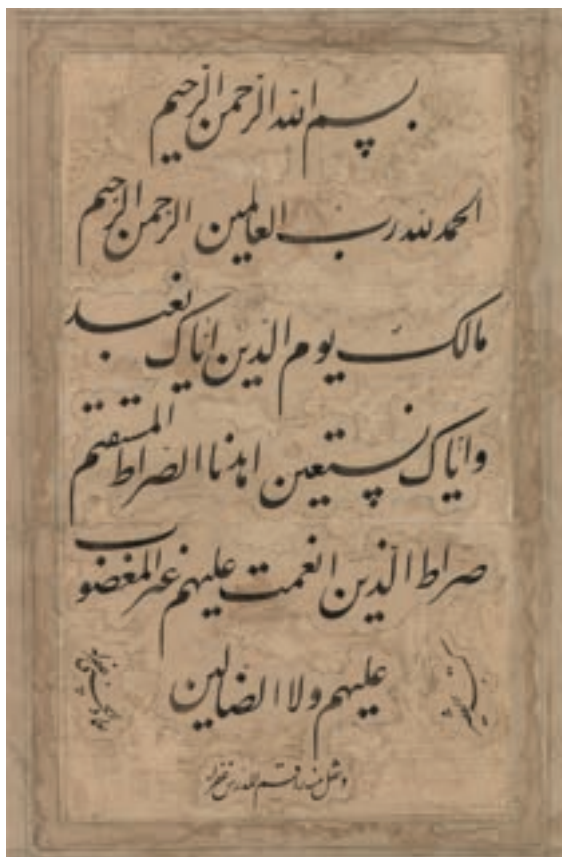 بسم الله الرحمن الرحيم
الحمد لله رب العالمين الرحمن الرحيم
مالك يوم الدّين ايّاك نعبد
وايّاك نستعين اهدنا الصّراط المستقيم
صراط الّذين انعمت عليهم غير المغضوب
عليهم ولا الضالين